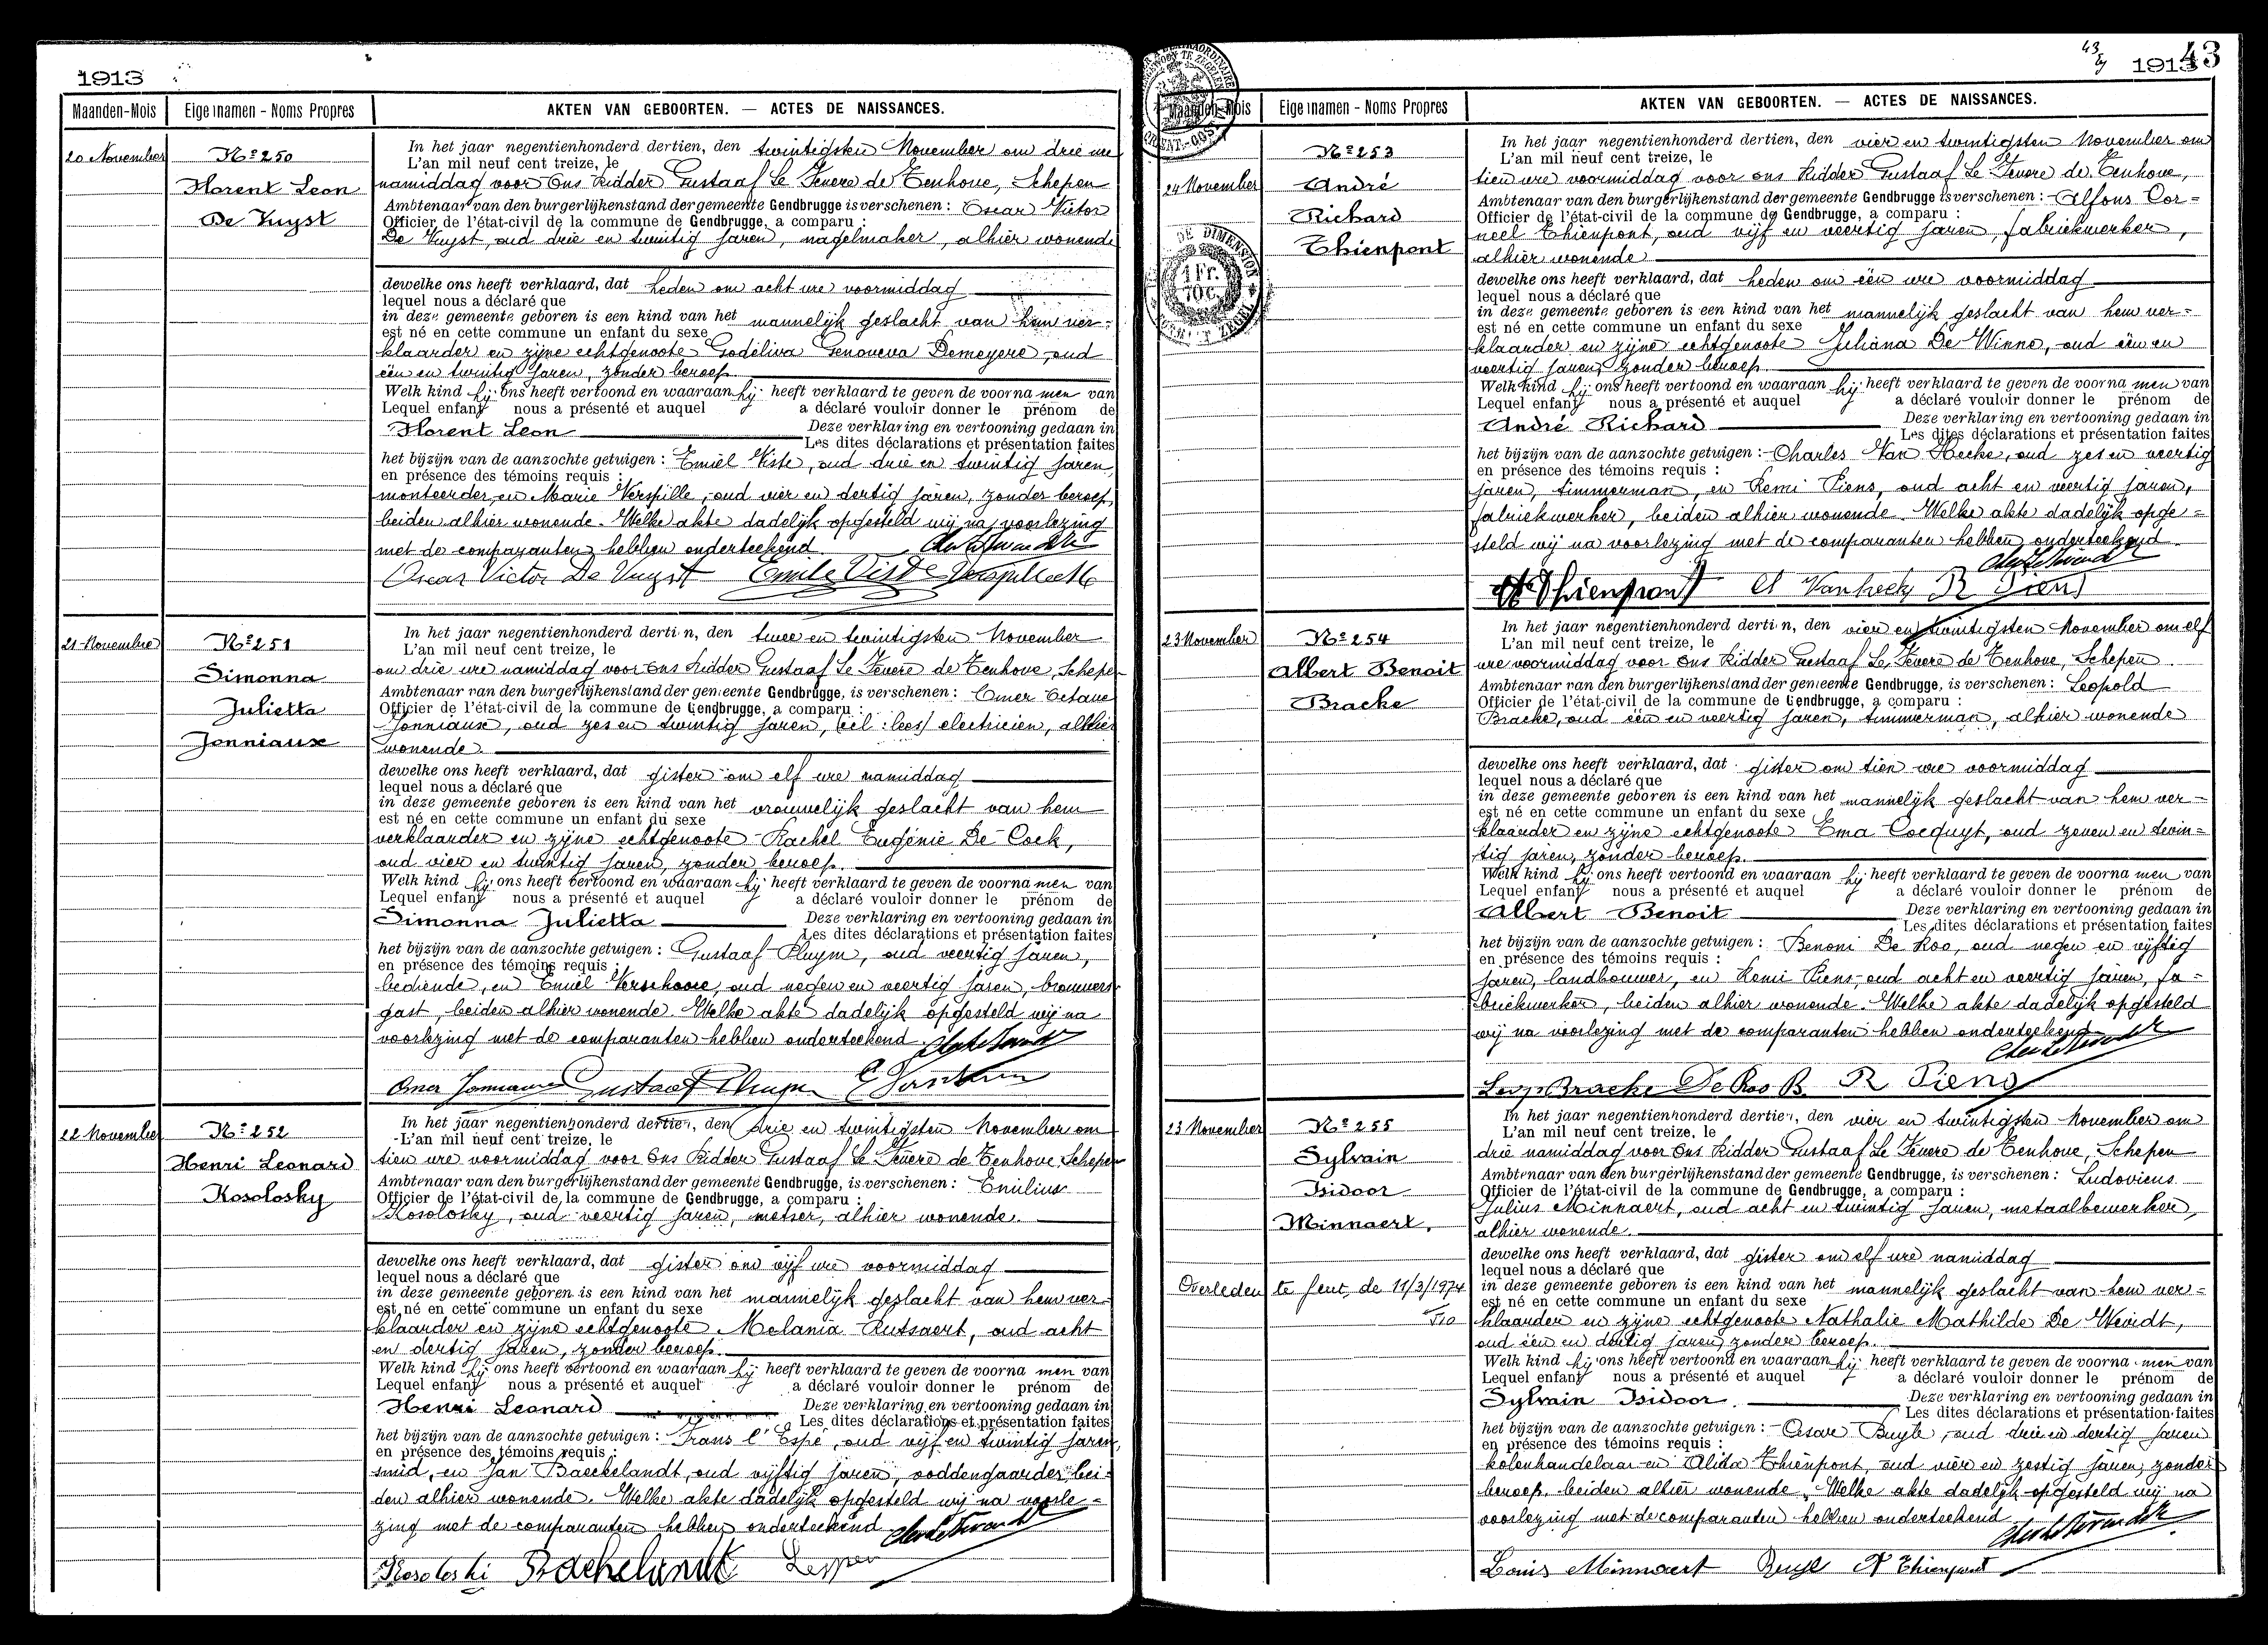 1913
Maanden-Mois Eigennamen - Noms Propres AKTEN VAN GEBOORTEN. — ACTES DE NAISSANCES.
20 November
Nº 250
Florent Leon
De Vuyst
In het jaar negentienhonderd dertien, den twintigsten November om drie ure
L'an mil neuf cent treize, le
namiddag voor Ons Ridder Gustaaf Le Fevere de Tenhove, Schepen
Ambtenaar van den burgerlijkenstand der gemeente Gendbrugge is verschenen : Oscar Victor
Officier de l'état-civil de la commune de Gendbrugge, a comparu :
De Vuyst, oud drie en twintig jaren, nagelmaker, alhier wonende
dewelke ons heeft verklaard, dat heden om acht ure voormiddag
lequel nous a déclaré que
in deze gemeente geboren is een kind van het mannelijk geslacht van hem ver=
est né en cette commune un enfant du sexe
klaarder en zijne echtgenoote Godeliva Genoveva Demeyere, oud
één en twintig jaren, zonder beroep.
Welk kind hij ons heeft vertoond en waaraan hij heeft verklaard te geven de voorna men van
Lequel enfant nous a présenté et auquel a déclaré vouloir donner le prénom de
Florent Leon Deze verklaring en vertooning gedaan in
Les dites déclarations et présentation faites
het bijzijn van de aanzochte getuigen : Emiel Viste, oud drie en twintig jaren,
en présence des témoins requis :
monteerder, en Marie Verspille, oud vier en dertig jaren, zonder beroep,
beiden alhier wonende. Welke akte dadelijk opgesteld wij na voorlezing
met de comparanten hebben onderteekend
Oscar Victor De Vuyst Emile Viste
21 November
Nº 251
Simonna
Julietta
Jonniaux
In het jaar negentienhonderd dertien, den twee en twintigsten November
L'an mil neuf cent treize, le
om drie ure namiddag voor Ons Ridder Gustaaf Le Fevere de Tenhove, Schepen
Ambtenaar van den burgerlijkenstand der gemeente Gendbrugge, is verschenen : Omer Octave
Officier de l'état-civil de la commune de Gendbrugge, a comparu :
Jonniaux, oud zes en twintig jaren, electricien, alhier
wonende.
dewelke ons heeft verklaard, dat gister om elf ure namiddag
lequel nous a déclaré que
in deze gemeente geboren is een kind van het vrouwelijk geslacht van hem
est né en cette commune un enfant du sexe
verklaarder en zijne echtgenoote Rachel Eugénie De Cock,
oud vier en twintig jaren, zonder beroep.
Welk kind hij ons heeft vertoond en waaraan hij heeft verklaard te geven de voorna men van
Lequel enfant nous a présenté et auquel a déclaré vouloir donner le prénom de
Simonna Julietta Deze verklaring en vertooning gedaan in
Les dites déclarations et présentation faites
het bijzijn van de aanzochte getuigen : Gustaaf Pluym, oud veertig jaren,
en présence des témoins requis :
bediende, en Emiel Verschoore, oud negen en veertig jaren, brouwers
gast, beiden alhier wonende. Welke akte dadelijk opgesteld wij na
voorlezing met de comparanten hebben onderteekend
Omer Jonniaux Gustaaf Pluym
22 November
Nº 252
Henri Leonard
Kosolosky
In het jaar negentienhonderd dertien, den drie en twintigsten November om
L'an mil neuf cent treize, le
tien ure voormiddag voor Ons Ridder Gustaaf Le Fevere de Tenhove, Schepen
Ambtenaar van den burgerlijkenstand der gemeente Gendbrugge, is verschenen : Emilius
Officier de l'état-civil de la commune de Gendbrugge, a comparu :
Kosolosky, oud veertig jaren, metser, alhier wonende.
dewelke ons heeft verklaard, dat gister om vijf ure voormiddag
lequel nous a déclaré que
in deze gemeente geboren is een kind van het mannelijk geslacht van hem ver=
est né en cette commune un enfant du sexe
klaarder en zijne echtgenoote Melania Rutsaert, oud acht
en dertig jaren, zonder beroep.
Welk kind hij ons heeft vertoond en waaraan hij heeft verklaard te geven de voorna men van
Lequel enfant nous a présenté et auquel a déclaré vouloir donner le prénom de
Henri Leonard Deze verklaring en vertooning gedaan in
Les dites déclarations et présentation faites
het bijzijn van de aanzochte getuigen : Frans l'Espé, oud vijf en twintig jaren,
en présence des témoins requis :
smid, en Jan Baeckelandt, oud vijftig jaren, voddengaarder, bei=
den alhier wonende. Welke akte dadelijk opgesteld wij na voorle=
zing met de comparanten hebben onderteekend
Kosoloski Backelandt
43
1913 43
Maanden-Mois Eigennamen - Noms Propres AKTEN VAN GEBOORTEN. — ACTES DE NAISSANCES.
24 November
Nº 253
André
Richard
Thienpont
DE DIMENSION
1 Fr.
10 c.
In het jaar negentienhonderd dertien, den vier en twintigsten November om
L'an mil neuf cent treize, le
tien ure voormiddag voor ons Ridder Gustaaf Le Fevere de Tenhove,
Ambtenaar van den burgerlijkenstand der gemeente Gendbrugge is verschenen : Alfons Cor=
Officier de l'état-civil de la commune de Gendbrugge, a comparu :
neel Thienpont, oud vijf en veertig jaren, fabriekwerker,
alhier wonende
dewelke ons heeft verklaard, dat heden om één ure voormiddag
lequel nous a déclaré que
in deze gemeente geboren is een kind van het mannelijk geslacht van hem ver=
est né en cette commune un enfant du sexe
klaarder en zijne echtgenoote Juliana De Winne, oud één en
veertig jaren, zonder beroep.
Welk kind hij ons heeft vertoond en waaraan hij heeft verklaard te geven de voorna men van
Lequel enfant nous a présenté et auquel a déclaré vouloir donner le prénom de
André Richard Deze verklaring en vertooning gedaan in
Les dites déclarations et présentation faites
het bijzijn van de aanzochte getuigen : Charles Van Hecke, oud zes en veertig
en présence des témoins requis :
jaren, timmerman, en Remi Piens, oud acht en veertig jaren,
fabriekwerker, beiden alhier wonende. Welke akte dadelijk opge=
steld wij na voorlezing met de comparanten hebben onderteekend
A Thienpont Vanhecke R Piens
23 November
Nº 254
Albert Benoit
Bracke
In het jaar negentienhonderd dertien, den vier en twintigsten November om elf
L'an mil neuf cent treize, le
ure voormiddag voor Ons Ridder Gustaaf Le Fevere de Tenhove, Schepen
Ambtenaar van den burgerlijkenstand der gemeente Gendbrugge, is verschenen : Leopold
Officier de l'état-civil de la commune de Gendbrugge, a comparu :
Bracke, oud één en veertig jaren, timmerman, alhier wonende
dewelke ons heeft verklaard, dat gister om tien ure voormiddag
lequel nous a déclaré que
in deze gemeente geboren is een kind van het mannelijk geslacht van hem ver=
est né en cette commune un enfant du sexe
klaarder en zijne echtgenoote Ema Cocquyt, oud zeven en twin=
tig jaren, zonder beroep.
Welk kind hij ons heeft vertoond en waaraan hij heeft verklaard te geven de voorna men van
Lequel enfant nous a présenté et auquel a déclaré vouloir donner le prénom de
Albert Benoit Deze verklaring en vertooning gedaan in
Les dites déclarations et présentation faites
het bijzijn van de aanzochte getuigen : Benoni De Roo, oud negen en vijftig
en présence des témoins requis :
jaren, landbouwer, en Remi Piens, oud acht en veertig jaren, fa=
briekwerker, beiden alhier wonende. Welke akte dadelijk opgesteld
wij na voorlezing met de comparanten hebben onderteekend
Leop Bracke De Roo B. R Piens
23 November
Nº 255
Sylvain
Isidoor
Minnaert.
Overleden te Gent, de 11/3/1974
In het jaar negentienhonderd dertien, den vier en twintigsten November om
L'an mil neuf cent treize, le
drie namiddag voor Ons Ridder Gustaaf Le Fevere de Tenhove, Schepen
Ambtenaar van den burgerlijkenstand der gemeente Gendbrugge, is verschenen : Ludovicus
Officier de l'état-civil de la commune de Gendbrugge, a comparu :
Julius Minnaert, oud acht en twintig jaren, metaalbewerker,
alhier wonende.
dewelke ons heeft verklaard, dat gister om elf ure namiddag
lequel nous a déclaré que
in deze gemeente geboren is een kind van het mannelijk geslacht van hem ver=
est né en cette commune un enfant du sexe
klaarder en zijne echtgenoote Nathalie Mathilde De Weirdt,
oud één en dertig jaren, zonder beroep.
Welk kind hij ons heeft vertoond en waaraan hij heeft verklaard te geven de voorna men van
Lequel enfant nous a présenté et auquel a déclaré vouloir donner le prénom de
Sylvain Isidoor. Deze verklaring en vertooning gedaan in
Les dites déclarations et présentation faites
het bijzijn van de aanzochte getuigen : Cesar Buyle, oud drie en dertig jaren
en présence des témoins requis :
kolenhandelaar en Alida Thienpont, oud vier en zestig jaren, zonder
beroep, beiden alhier wonende. Welke akte dadelijk opgesteld wij na
voorlezing met de comparanten hebben onderteekend
Louis Minnaert Buyle A Thienpont